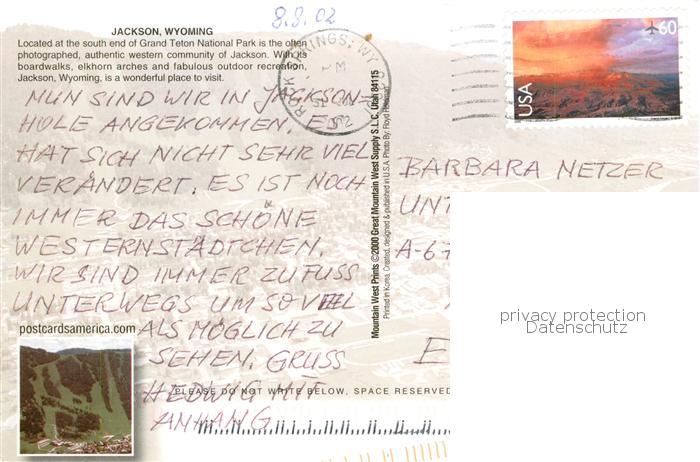 8.8.02
JACKSON, WYOMING
Located at the south end of Grand Teton National Park is the often
photographed, authentic western community of Jackson. With its
boardwalks, elkhorn arches and fabulous outdoor recreation,
Jackson, Wyoming, is a wonderful place to visit.
NUN SIND WIR IN JACKSON-
HOLE ANGEKOMMEN. ES
HAT SICH NICHT SEHR VIEL
VERÄNDERT. ES IST NOCH
IMMER DAS SCHÖNE
WESTERNSTÄDTCHEN.
WIR SIND IMMER ZU FUSS
UNTERWEGS UM SO VIEL
ALS MÖGLICH ZU
SEHEN. GRUSS
HEDWIG MIT
ANHANG
postcardsamerica.com
PLEASE DO NOT WRITE BELOW, SPACE RESERVED
Mountain West Prints ©2000 Great Mountain West Supply S.L.C. Utah 84115
Printed in Korea. Created, designed & published in U.S.A. Photo By: Floyd
ROCK SPRINGS, WY
PM
2002
USA
60
BARBARA NETZER
UNT
A-67
E
privacy protection
Datenschutz